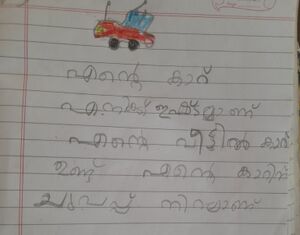 എന്റെ കാറ്
എനിക്ക് ഇഷ്ടമാണ്
എന്റെ വീട്ടിൽ കാർ
ഉണ്ട് എന്റെ കാറിന്
ചുവപ്പ് നിറമാണ്